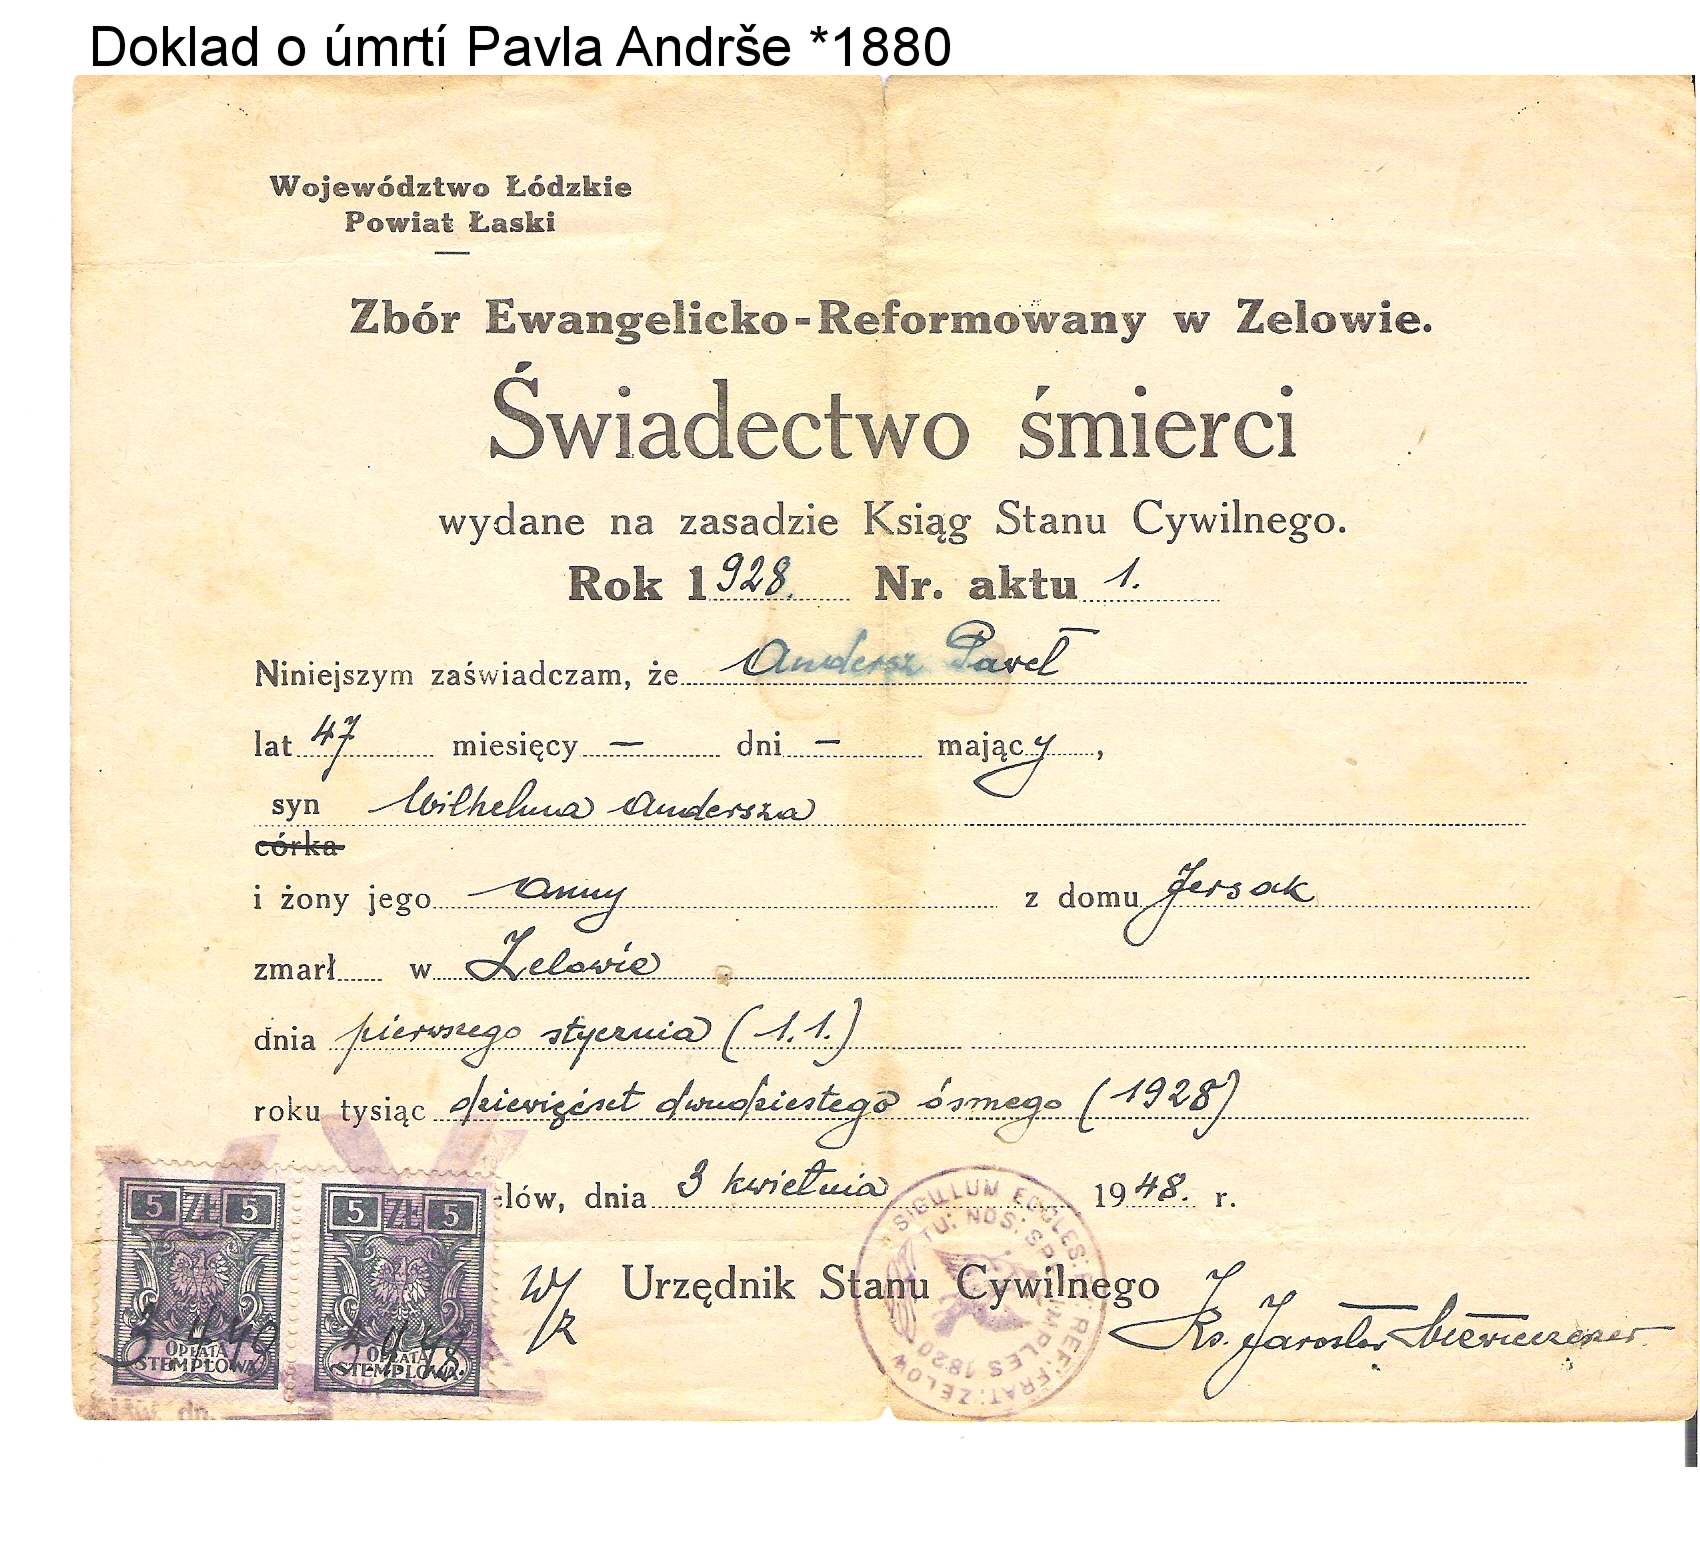 Doklad o úmrtí Pavla Andrše *1880
Województwo Łódzkie
Powiat Łaski
Zbór Ewangelicko-Reformowany w Zelowie.
Świadectwo śmierci
wydane na zasadzie Ksiąg Stanu Cywilnego.
Rok 1928. Nr. aktu 1.
Niniejszym zaświadczam, że Andersz Paweł
lat 47 miesięcy — dni — mający,
syn Wilhelma Andersza
córka
i żony jego Anny z domu Jersak
zmarł w Zelowie
dnia pierwszego stycznia (1.1.)
roku tysiąc dziewięćset dwudziestego ósmego (1928)
elów, dnia 3 kwietnia 1948. r.
w/z Urzędnik Stanu Cywilnego
Ks. Jarosław
5 ZŁ 5
OPŁATA
STEMPLOWA
3 4 48
5 ZŁ 5
OPŁATA
STEMPLOWA
3 4 48
SIGILLUM ECCLES: REF: FRAT: ZELOW
1820